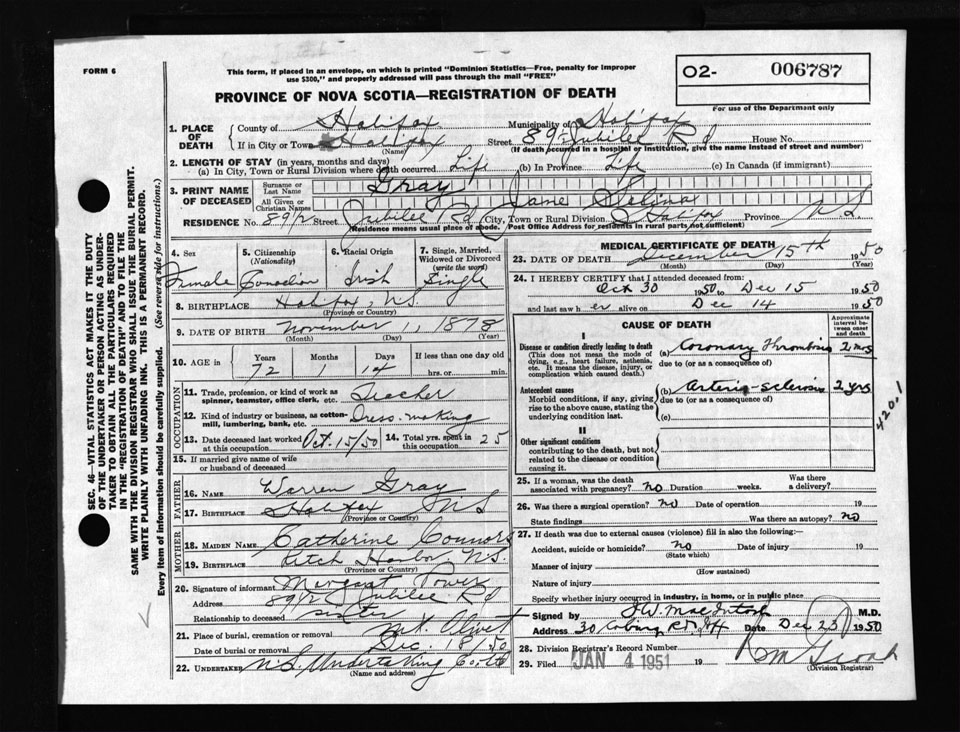 FORM 6
This form, if placed in an envelope, on which is printed "Dominion Statistics—Free, penalty for improper
use $300," and properly addressed will pass through the mail "FREE"
O2- 006787
For use of the Department only
PROVINCE OF NOVA SCOTIA—REGISTRATION OF DEATH
1. PLACE OF DEATH { County of Halifax Municipality of Halifax
If in City or Town Halifax (Name) Street 89½ Jubilee Rd House No.
(If death occurred in a hospital or institution, give the name instead of street and number)
2. LENGTH OF STAY (in years, months and days)
(a) In City, Town or Rural Division where death occurred Life (b) In Province Life (c) In Canada (if immigrant)
3. PRINT NAME OF DECEASED { Surname or Last Name Gray
All Given or Christian Names Jane Selina
RESIDENCE No. 89½ Street Jubilee Rd City, Town or Rural Division Halifax Province N S.
(Residence means usual place of abode. Post Office Address for residents in rural parts not sufficient)
4. Sex Female
5. Citizenship (Nationality) Canadian
6. Racial Origin Irish
7. Single, Married, Widowed or Divorced (write the word) Single
8. BIRTHPLACE Halifax, N.S.
(Province or Country)
9. DATE OF BIRTH November 1, 1878
(Month) (Day) (Year)
10. AGE in { Years 72 Months 1 Days 14 If less than one day old hrs. or min.
OCCUPATION
11. Trade, profession, or kind of work as spinner, teamster, office clerk, etc. Teacher
12. Kind of industry or business, as cotton-mill, lumbering, bank, etc. Dress-making
13. Date deceased last worked at this occupation Oct. 15/50 14. Total yrs. spent in this occupation 25
15. If married give name of wife or husband of deceased
FATHER
16. NAME Warren Gray
17. BIRTHPLACE Halifax N S
(Province or Country)
MOTHER
18. MAIDEN NAME Catherine Connors
19. BIRTHPLACE Ketch Harbor, N.S.
(Province or Country)
20. Signature of informant Margaret Power
Address 89½ Jubilee Rd
Relationship to deceased sister
21. Place of burial, cremation or removal Mt. Olivet
Date of burial or removal Dec. 18/50
22. UNDERTAKER N.S. Undertaking Co Ltd
(Name and address)
MEDICAL CERTIFICATE OF DEATH
23. DATE OF DEATH December 15th 1950
(Month) (Day) (Year)
24. I HEREBY CERTIFY that I attended deceased from
Oct 30 1950 to Dec 15 1950
and last saw her alive on Dec 14 1950
CAUSE OF DEATH
Approximate interval between onset and death
I
Disease or condition directly leading to death
(This does not mean the mode of dying, e.g., heart failure, asthenia, etc. It means the disease, injury, or complication which caused death.)
(a) Coronary Thrombosis 2 mos
due to (or as a consequence of)
Antecedent causes
Morbid conditions, if any, giving rise to the above cause, stating the underlying condition last.
(b) Arterio-sclerosis 2 yrs
due to (or as a consequence of)
(c)
420.1
II
Other significant conditions
contributing to the death, but not related to the disease or condition causing it.
25. If a woman, was the death associated with pregnancy? no Duration weeks. Was there a delivery?
26. Was there a surgical operation? no Date of operation 19
State findings Was there an autopsy? no
27. If death was due to external causes (violence) fill in also the following:—
Accident, suicide or homicide? no Date of injury 19
(State which)
Manner of injury
(How sustained)
Nature of injury
Specify whether injury occurred in industry, in home, or in public place
Signed by H.W. MacIntosh M.D.
Address 30 Coburg Rd Hfx Date Dec 23 1950
28. Division Registrar's Record Number
29. Filed JAN 4 1951 19
(Division Registrar)
SEC. 46—VITAL STATISTICS ACT MAKES IT THE DUTY
OF THE UNDERTAKER OR PERSON ACTING AS UNDER-
TAKER TO OBTAIN ALL THE PARTICULARS REQUIRED
IN THE "REGISTRATION OF DEATH" AND TO FILE THE
SAME WITH THE DIVISION REGISTRAR WHO SHALL ISSUE THE BURIAL PERMIT.
WRITE PLAINLY WITH UNFADING INK. THIS IS A PERMANENT RECORD.
Every item of information should be carefully supplied. (See reverse side for instructions.)